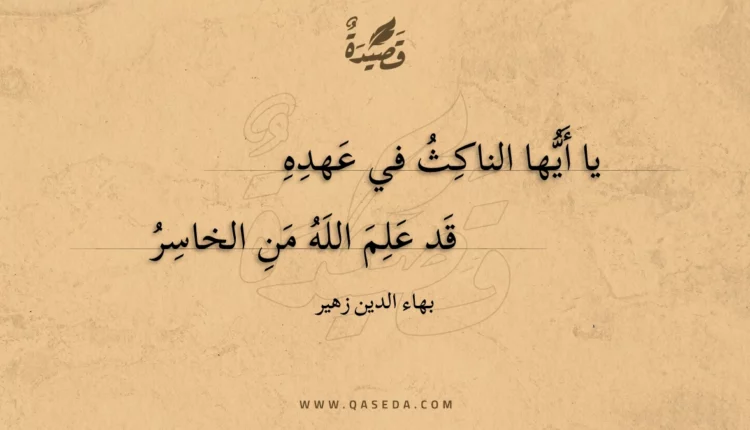 قَصِيدَةٌ
يا أَيُّها الناكِثُ في عَهدِهِ
قَد عَلِمَ اللَهُ مَنِ الخاسِرُ
بهاء الدين زهير
WWW.QASEDA.COM